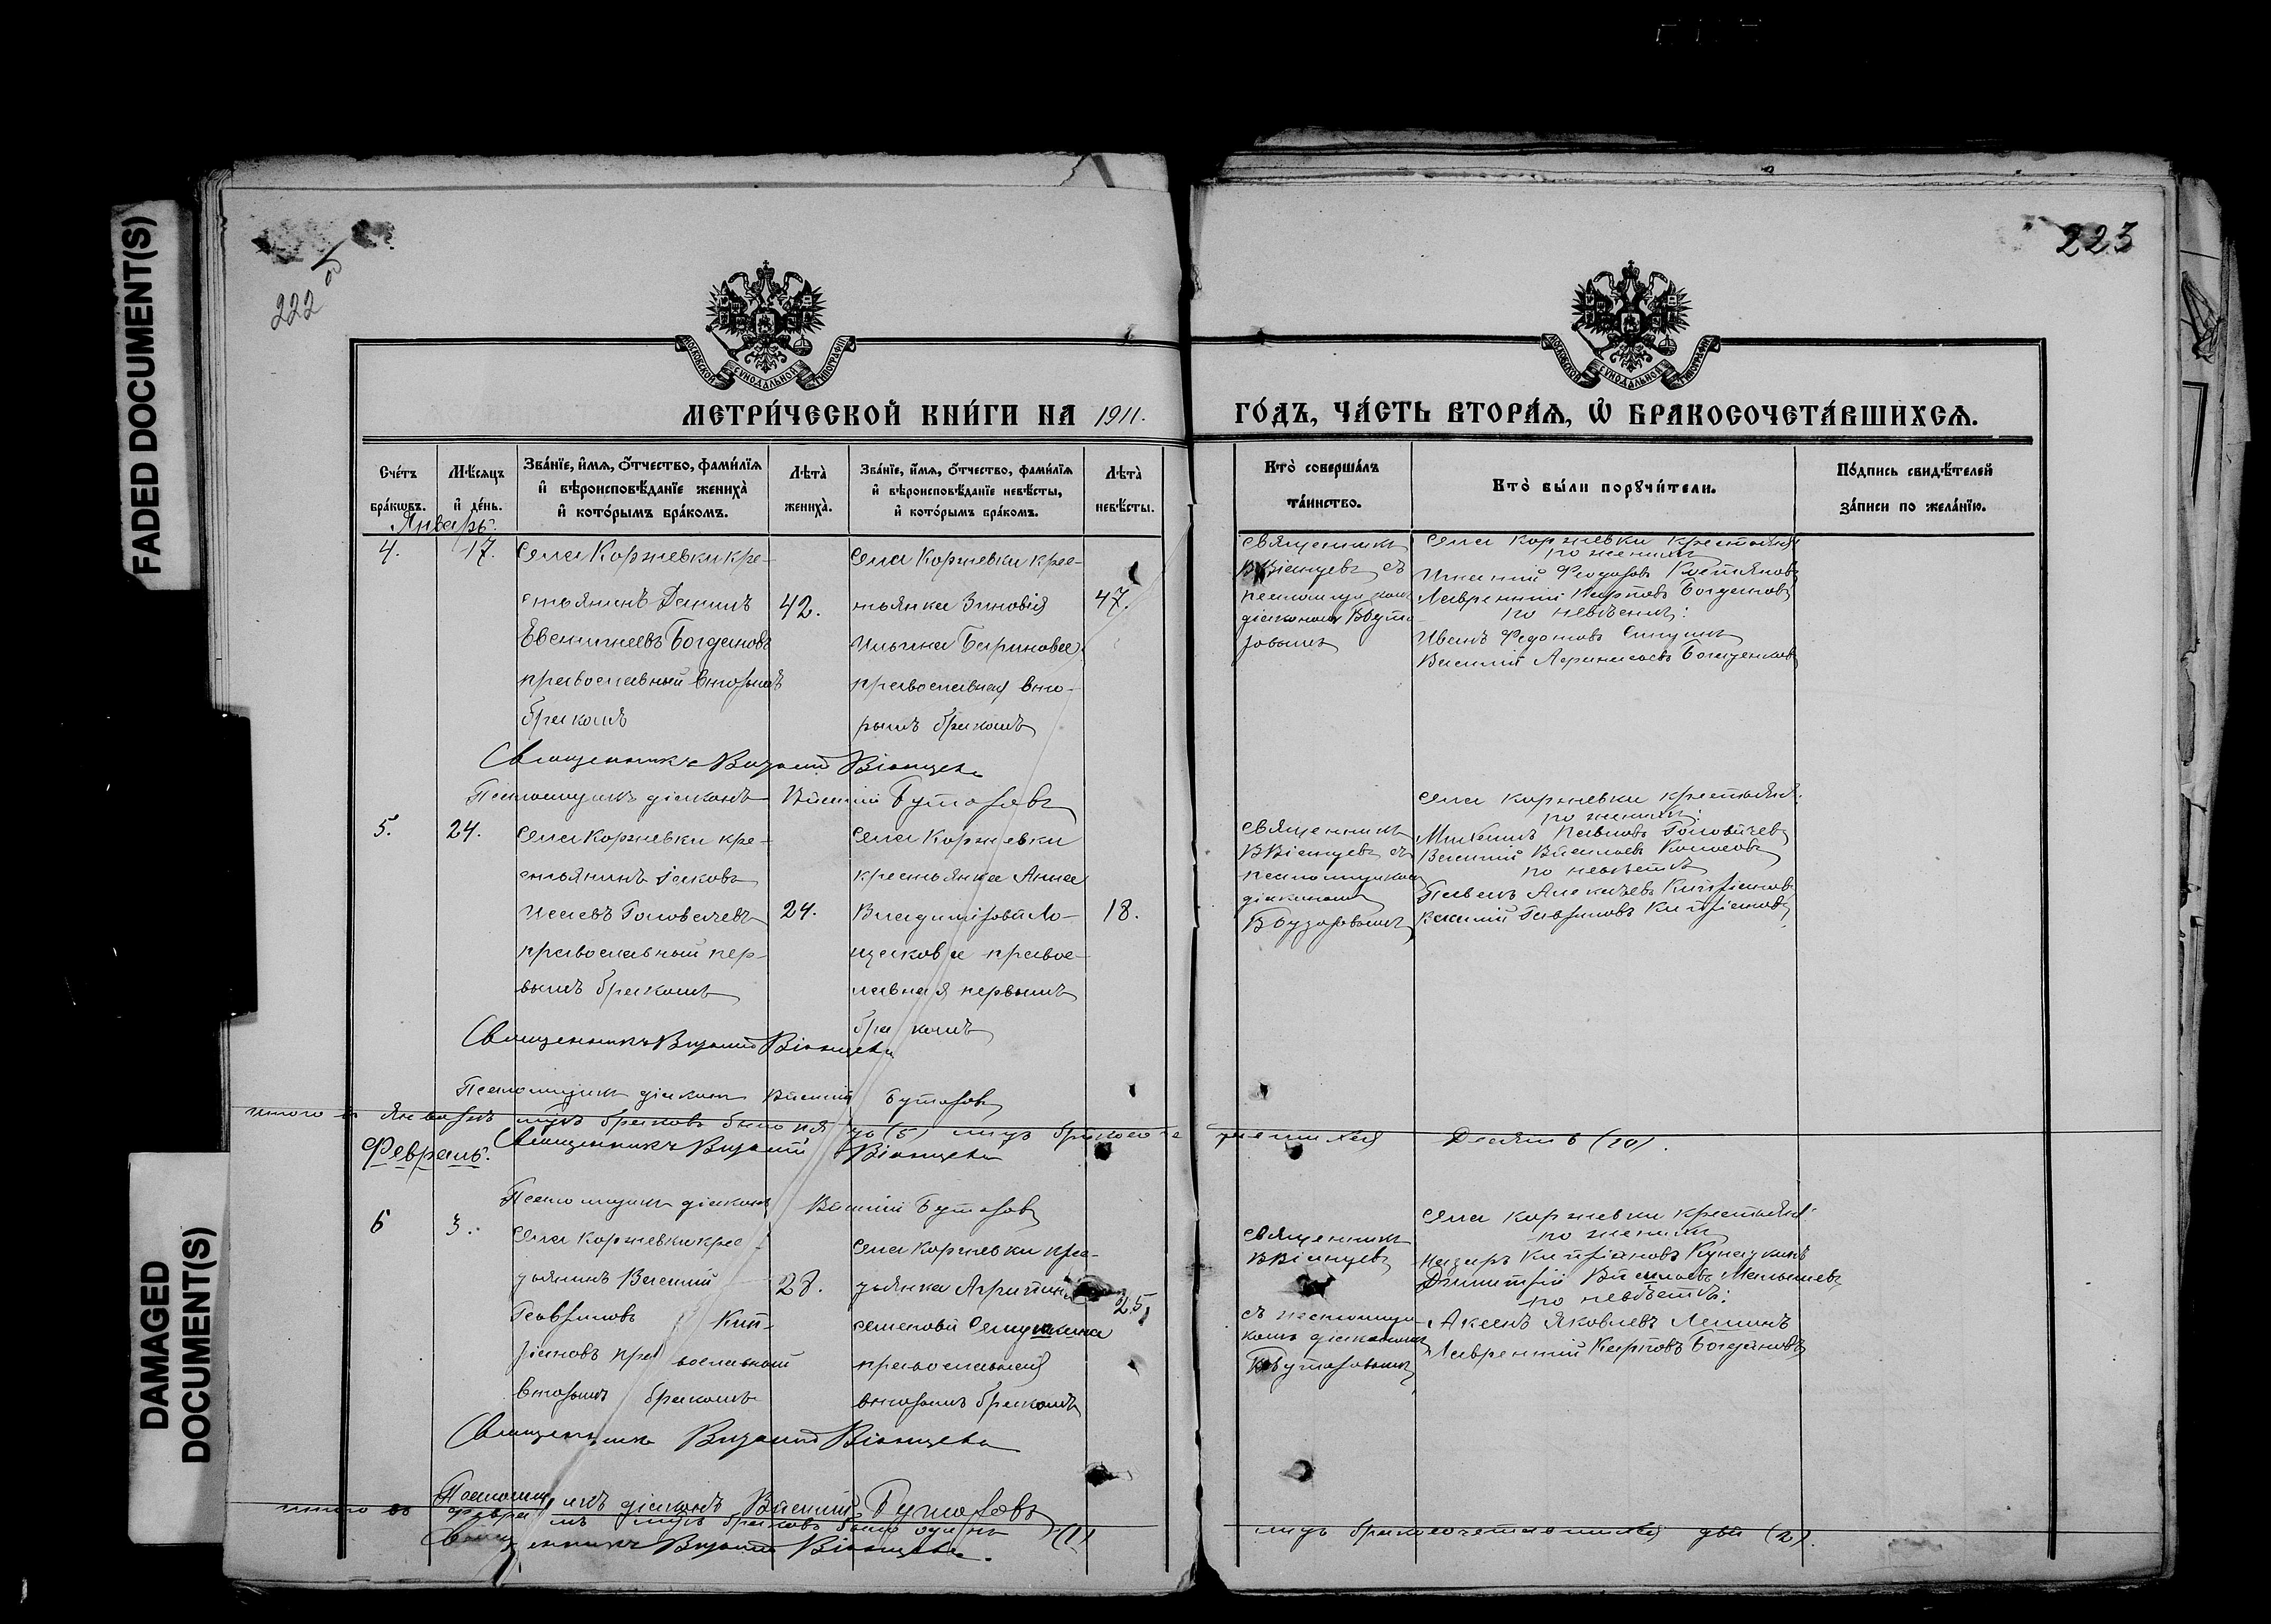 FADED DOCUMENT(S)
DAMAGED
DOCUMENT(S)
222 об
223
МОСКОВСКОЙ СѴНОДАЛЬНОЙ ТИПОГРАФІИ
МОСКОВСКОЙ СѴНОДАЛЬНОЙ ТИПОГРАФІИ
МЕТРИ́ЧЕСКОЙ КНИ́ГИ НА 1911. ГО́ДЪ, ЧА́СТЬ ВТОРА́Ѧ, Ѡ БРАКОСОЧЕТА́ВШИХСѦ.
Сче́тъ бра́кѡвъ.
Мѣ́сѧцъ и҆ де́нь.
Зва́нїе, и҆́мѧ, ѻ҆́тчество, фами́лїѧ
и҆ вѣроисповѣ́данїе жениха̀
и҆ кото́рымъ бра́комъ.
Лѣ́та̀ жениха̀.
Зва́нїе, и҆́мѧ, ѻ҆́тчество, фами́лїѧ
и҆ вѣроисповѣ́данїе невѣ́сты,
и҆ кото́рымъ бра́комъ.
Лѣ́та̀ невѣ́сты.
Кто̀ соверша́лъ
та́инство.
Кто̀ бы́ли порꙋчи́тели.
По́дпись свидѣ́телей
за́писи по жела́нїю.
Январь.
4.
17.
Села Коржевки кре-
стьянинъ Данилъ
Евсигнеевъ Богдановъ
православный вторымъ
бракомъ
42.
Села Коржевки крес-
тьянка Зиновія
Ильина Баринова
православная вто-
рымъ бракомъ
47.
священникъ
В Віанцевъ съ
псаломщикомъ
діакономъ В Бута
ровымъ
Села Коржевки крестьяне
по женихѣ
Игнатій Федоровъ
Лаврентій Карповъ Богдановъ
по невѣстѣ:
Иванъ Федотовъ
Василій Афанасьевъ
Священникъ Віанцевъ
Псаломщикъ діаконъ Василій Бутаровъ
5.
24.
Села Коржевки кре-
стьянинъ Іаковъ
Исаевъ Головачевъ
православный пер-
вымъ бракомъ
24.
Села Коржевки
крестьянка Анна
Владимірова Ло-
щакова правос-
лавная первымъ
бракомъ
18.
священникъ
В Віанцевъ съ
псаломщикомъ
діакономъ
Села Коржевки крестьяне.
по женихѣ:
Михаилъ Павловъ Головачевъ
Василій Васильевъ
по невѣстѣ
Павелъ Алексѣевъ Кипріановъ
Василій Гавриловъ Кипріановъ
Священникъ Віанцевъ
Псаломщикъ діаконъ Василій Бутаровъ
итого въ Январѣ мцѣ браковъ было пять (5) лицъ бракосочетавшихся десять (10).
Священникъ Віанцевъ
Февраль.
Псаломщикъ діаконъ Василій Бутаровъ
6
3.
Села Коржевки крес-
тьянинъ Василій
Гавриловъ Кип-
ріановъ православный
вторымъ бракомъ
28.
Села Коржевки крес-
тьянка Агрипина
Семенова Семушкина
православная
вторымъ бракомъ
25
священникъ
В Віанцевъ
съ псаломщи-
комъ діакономъ
В Бутаровымъ
Села Коржевки крестьяне
по женихѣ
Назаръ Кипріановъ
Димитрій Васильевъ
по невѣстѣ:
Аксенъ Яковлевъ
Лаврентій Карповъ Богдановъ
Священникъ Віанцевъ
Псаломщикъ діаконъ Василій Бутаровъ
итого въ февралѣ мцѣ браковъ было одинъ (1) лицъ бракосочетавшихся два (2).
Священникъ Віанцевъ.